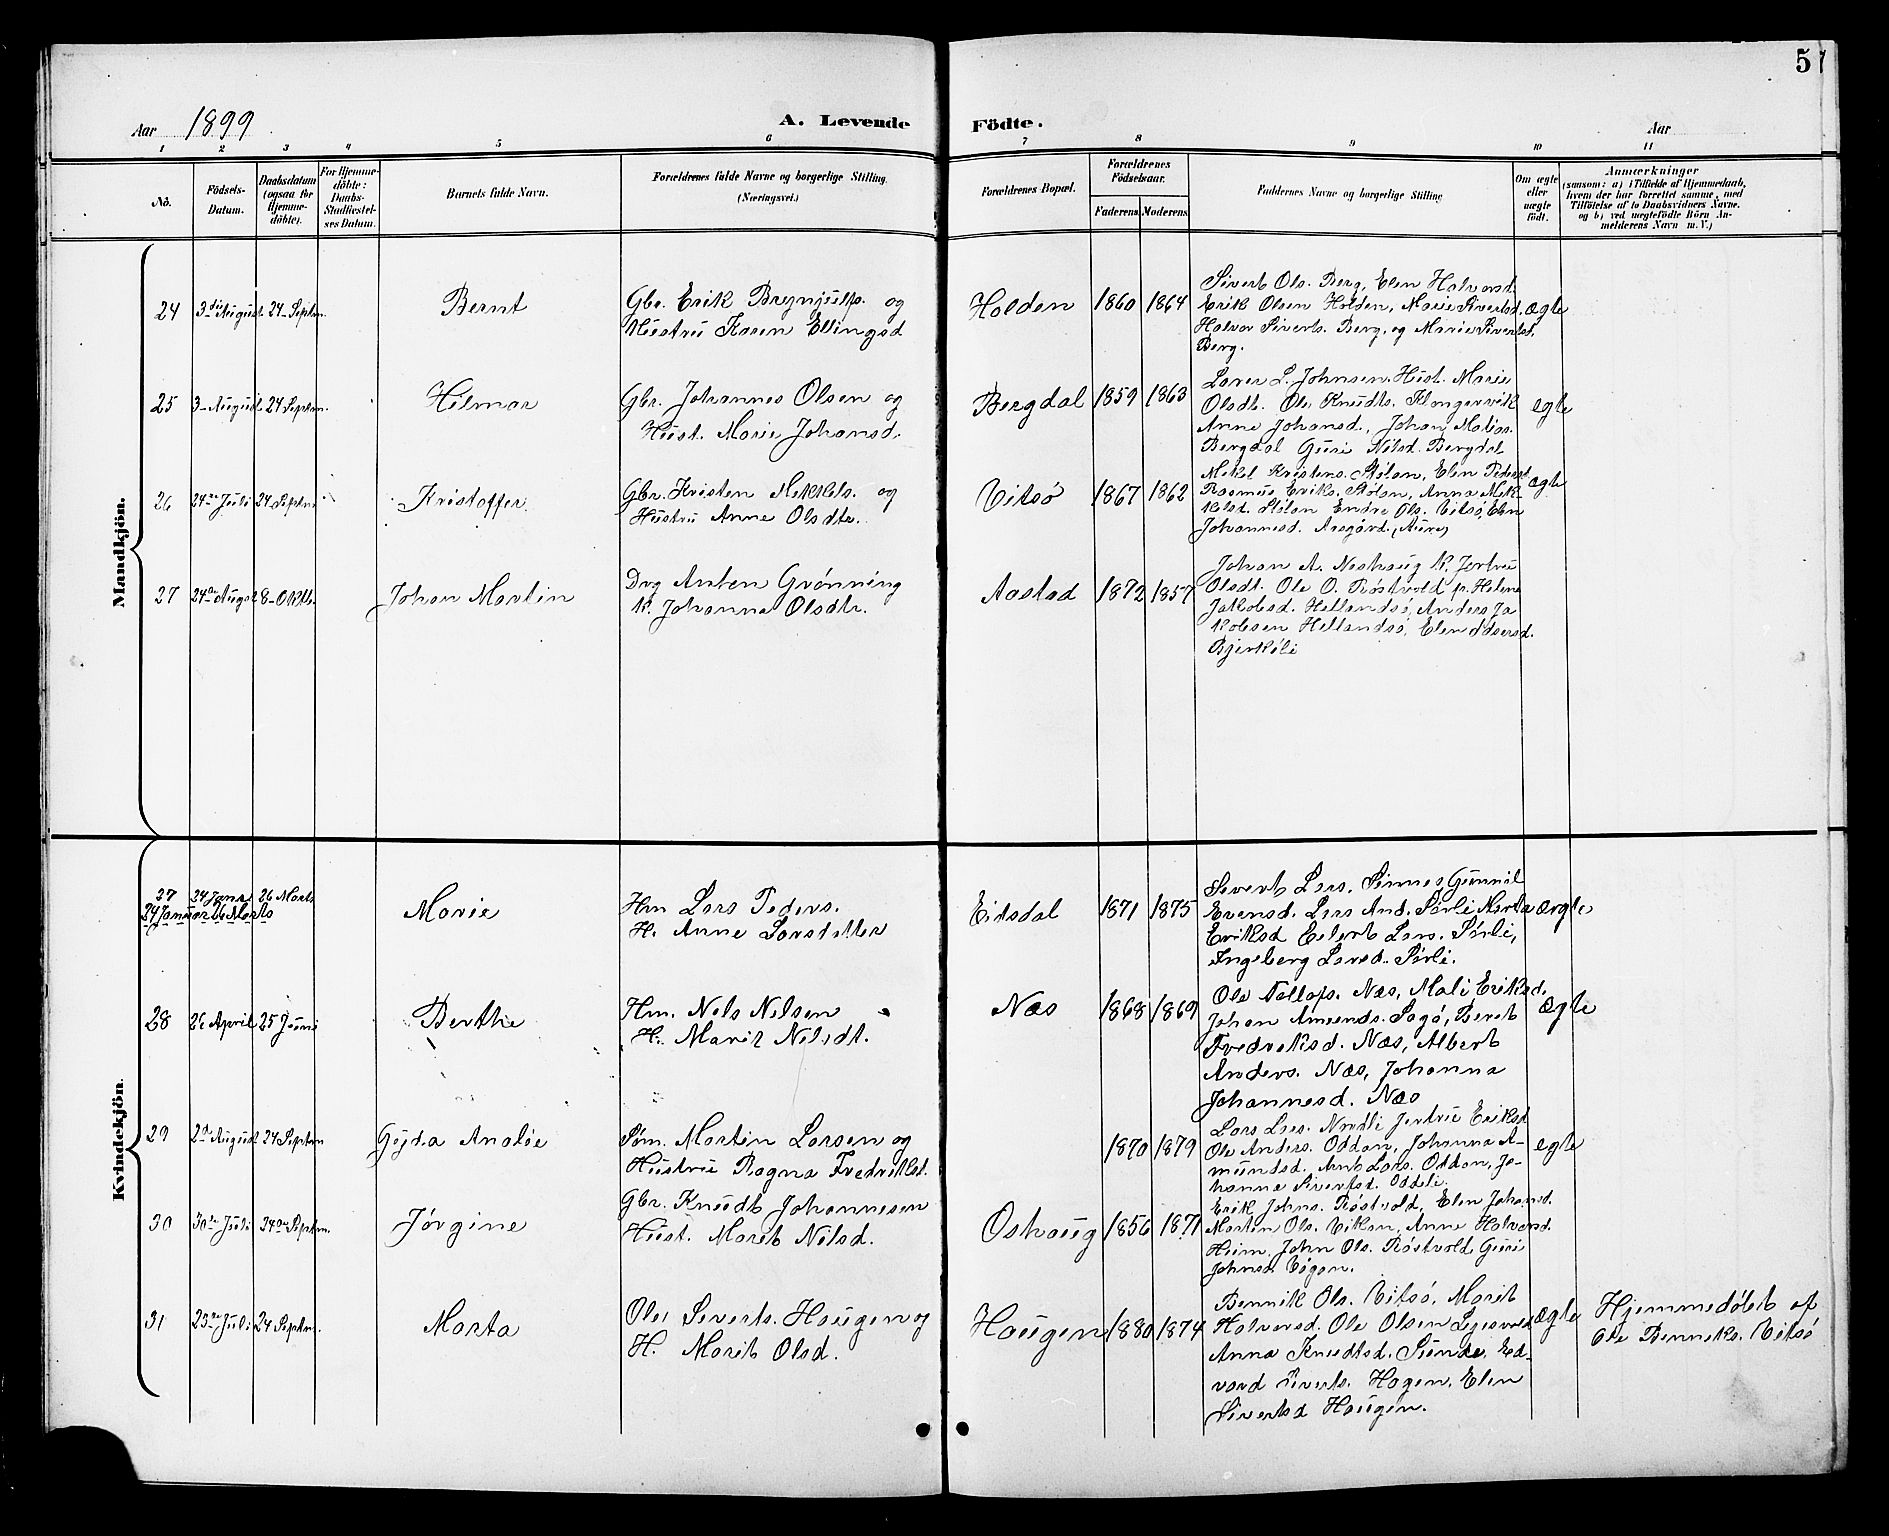 57
Aar 1899
A. Levende Födte.
Aar
1 2 3 4 5 6 7 8 9 10 11
No.
Födsels-Datum.
Daabsdatum (ogsaa for Hjemme-döbte).
For Hjemme-döbte: Daabs-Stadfæstel-ses Datum.
Barnets fulde Navn.
Forældrenes fulde Navne og borgerlige Stilling.
(Næringsvei.)
Forældrenes Bopæl.
Forældrenes Födselsaar.
Faderens. Moderens.
Faddernes Navne og borgerlige Stilling
Om ægte eller uægte födt.
Anmærkninger
(saasom: a) i Tilfælde af Hjemmedaab,
hvem der har forrettet samme, med
Tilföielse af to Daabsvidners Navne,
og b) ved uægtefödte Börn An-
melderens Navn m. V.)
Mandkjön.
24 3die August 24 Septm. Bernt
Gbr. Erik Brynjulfs. og
Hustru Karen Ellingsd
Holden 1860 1864
Sivert Ols. Berg, Elen Halvorsd.
Erik Olsen Holden, Marie Sivertsd.
Halvor Siverts. Berg, og Marie Sivertsd.
Berg.
ægte
25 3- August 24 Septm. Hilmar
Gbr. Johannes Olsen og
Hust. Marie Johansd.
Bergdal 1859 1863
Lars L. Johnsen, Hust. Marie
Olsdt. Ole Knudts.
Anne Johansd., Johan Matias.
Bergdal Guri Nilsd. Bergdal
ægte
26 24de Juli 24 Septm Kristoffer
Gbr. Kristen Mekkels. og
Hustru Anne Olsdtr.
Vitsö 1867 1862
Mekel Kristens. Stölan, Elen Pedersd
Rasmus Eriks. Stölan, Anna Mek-
kelsd. Stölan Endre Ols. Vitsö, Elen
Johannesd. Aasgård. (Aure)
ægte
27 24de August 8- Oktb. Johan Martin
Drg Anten Grönning
K. Johanna Olsdtr.
Aastad 1872 1857
Johan A. Neshaug K. Jertru
Olsdt. Ole O. Röstvold p. Helene
Jakobsd. Hellandsö, Anders Ja
kobsen Hellandsö, Elen Idsersd.
Bjerkeli
Kvindekjön.
27 24 Janr 26 Marts Marie
24 Januar 26 Marts
Hm Lars Peders.
H. Anne Larsdatter
Eidsdal 1871 1875
Sivert Lars. Sinnes, Gunnil
Evensd. Lars And. Sörli Marta
Eriksd Eilert Lars. Sörli,
Ingeberg Larsd. Sörli.
ægte
28 26 April 25 Juni Berthe
Hm. Nels Nelsen
H. Marit Nelsdt.
Næs 1868 1869
Ole Tollefs. Næs, Mali Eriksd.
Johan Amunds. Sagö, Beret
Fredreksd. Næs, Albert
Anders. Næs, Johanna
Johannesd. Næs
ægte
29 2de August 24 Septm Gyda Analöe
Söm. Martin Larsen og
Hustru Ragna Fredriksd.
1870 1879
Lars Lars. Nordli Jertru Eriksd
Ole Anders. Oddan, Johanna A-
mundsd. Arnt Lars. Oddan, Jo-
hanna Sivertsd. Oddeli.
ægte
30 30te Juli 24de Septm. Jörgine
Gbr. Knudt Johannesen
Hust. Marit Nilsd.
Oshaug 1856 1871
Erik Johns. Röstvold, Elen Johansd.
Martin Ols. Viken, Anne Halvorsd.
Heim. John Ols. Röstvold Guri
Johnsd. Vågan.
31 23de Juli 24 Septm. Marta
Ole Siverts. Haugen og
H. Marit Olsd.
Haugen 1880 1874
Bennik Ols. Vitsö, Marit
Halvorsd. Ole Olsen
Anna Knudtsd. Ed-
vard Siverts. Hagen, Elen
Sivertsd Haugen.
ægte
Hjemmedöbt af
Ole Benneks. Vitsö